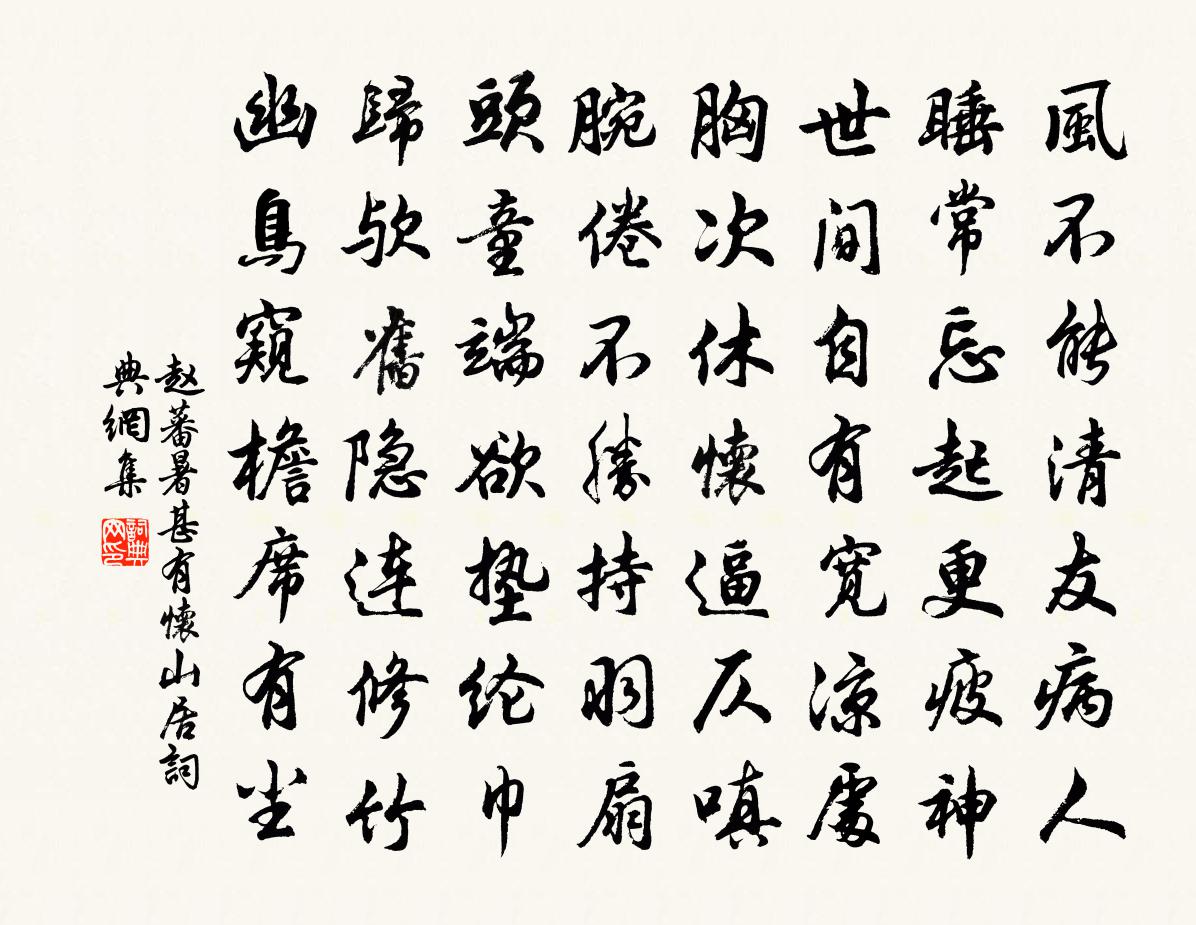 風不能清友病人
睡常忘起更疲神
世间自有宽涼處
胸次休懷逼仄嗔
腕倦不勝持羽扇
頭童端欲垫纶巾
歸欤舊隐连修竹
幽鳥窺檐席有尘
赵蕃暑甚有懷山居詞
典網集
詞典
网印